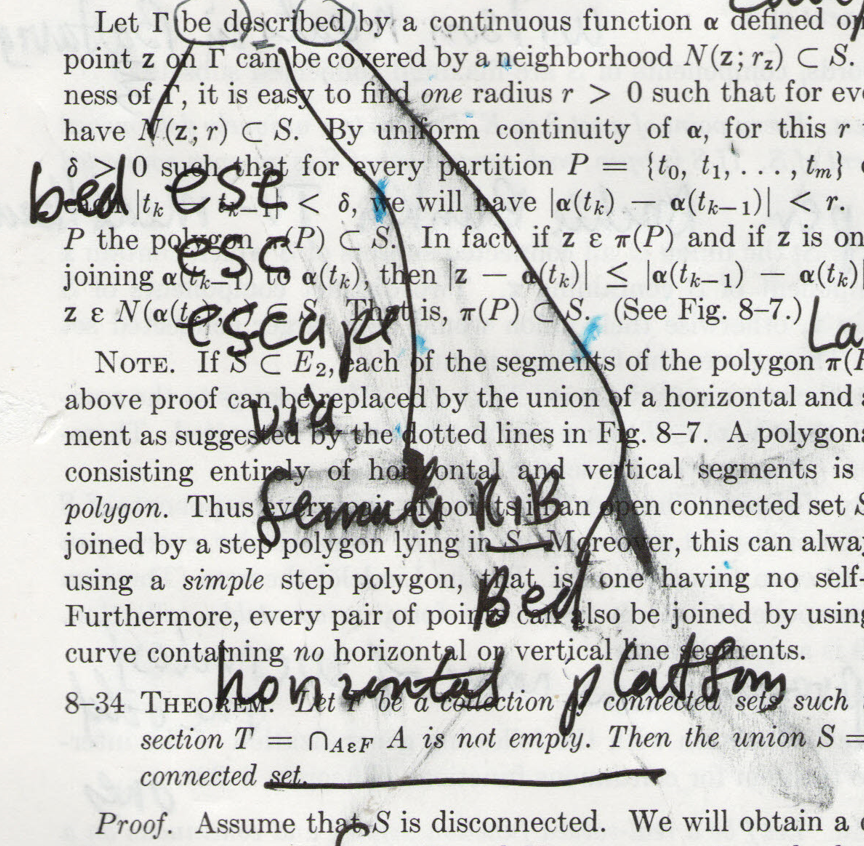 Let Γ be described by a continuous function α defined on
point z on Γ can be covered by a neighborhood N(z; r_z) ⊂ S.
ness of Γ, it is easy to find one radius r > 0 such that for eve
have N(z; r) ⊂ S. By uniform continuity of α, for this r
δ > 0 such that for every partition P = {t₀, t₁, . . . , t_m}
bed ese
each |t_k − t_{k−1}| < δ, we will have |α(t_k) − α(t_{k−1})| < r.
P the polygon π(P) ⊂ S. In fact, if z ε π(P) and if z is on
esc
joining α(t_{k−1}) to α(t_k), then |z − α(t_k)| ≤ |α(t_{k−1}) − α(t_k)|
z ε N(α(t_k), r) ⊂ S. That is, π(P) ⊂ S. (See Fig. 8–7.)
escape
La
NOTE. If S ⊂ E₂, each of the segments of the polygon π(P
above proof can be replaced by the union of a horizontal and a
via
ment as suggested by the dotted lines in Fig. 8–7. A polygona
consisting entirely of horizontal and vertical segments is
polygon. Thus every pair of points in an open connected set S
female RIB
joined by a step polygon lying in S. Moreover, this can alwa
using a simple step polygon, that is, one having no self-
Bed
Furthermore, every pair of points can also be joined by using
curve containing no horizontal or vertical line segments.
horizontal platform
8–34 THEOREM. Let F be a collection of connected sets such
section T = ∩_{AεF} A is not empty. Then the union S =
connected set.
Proof. Assume that S is disconnected. We will obtain a c